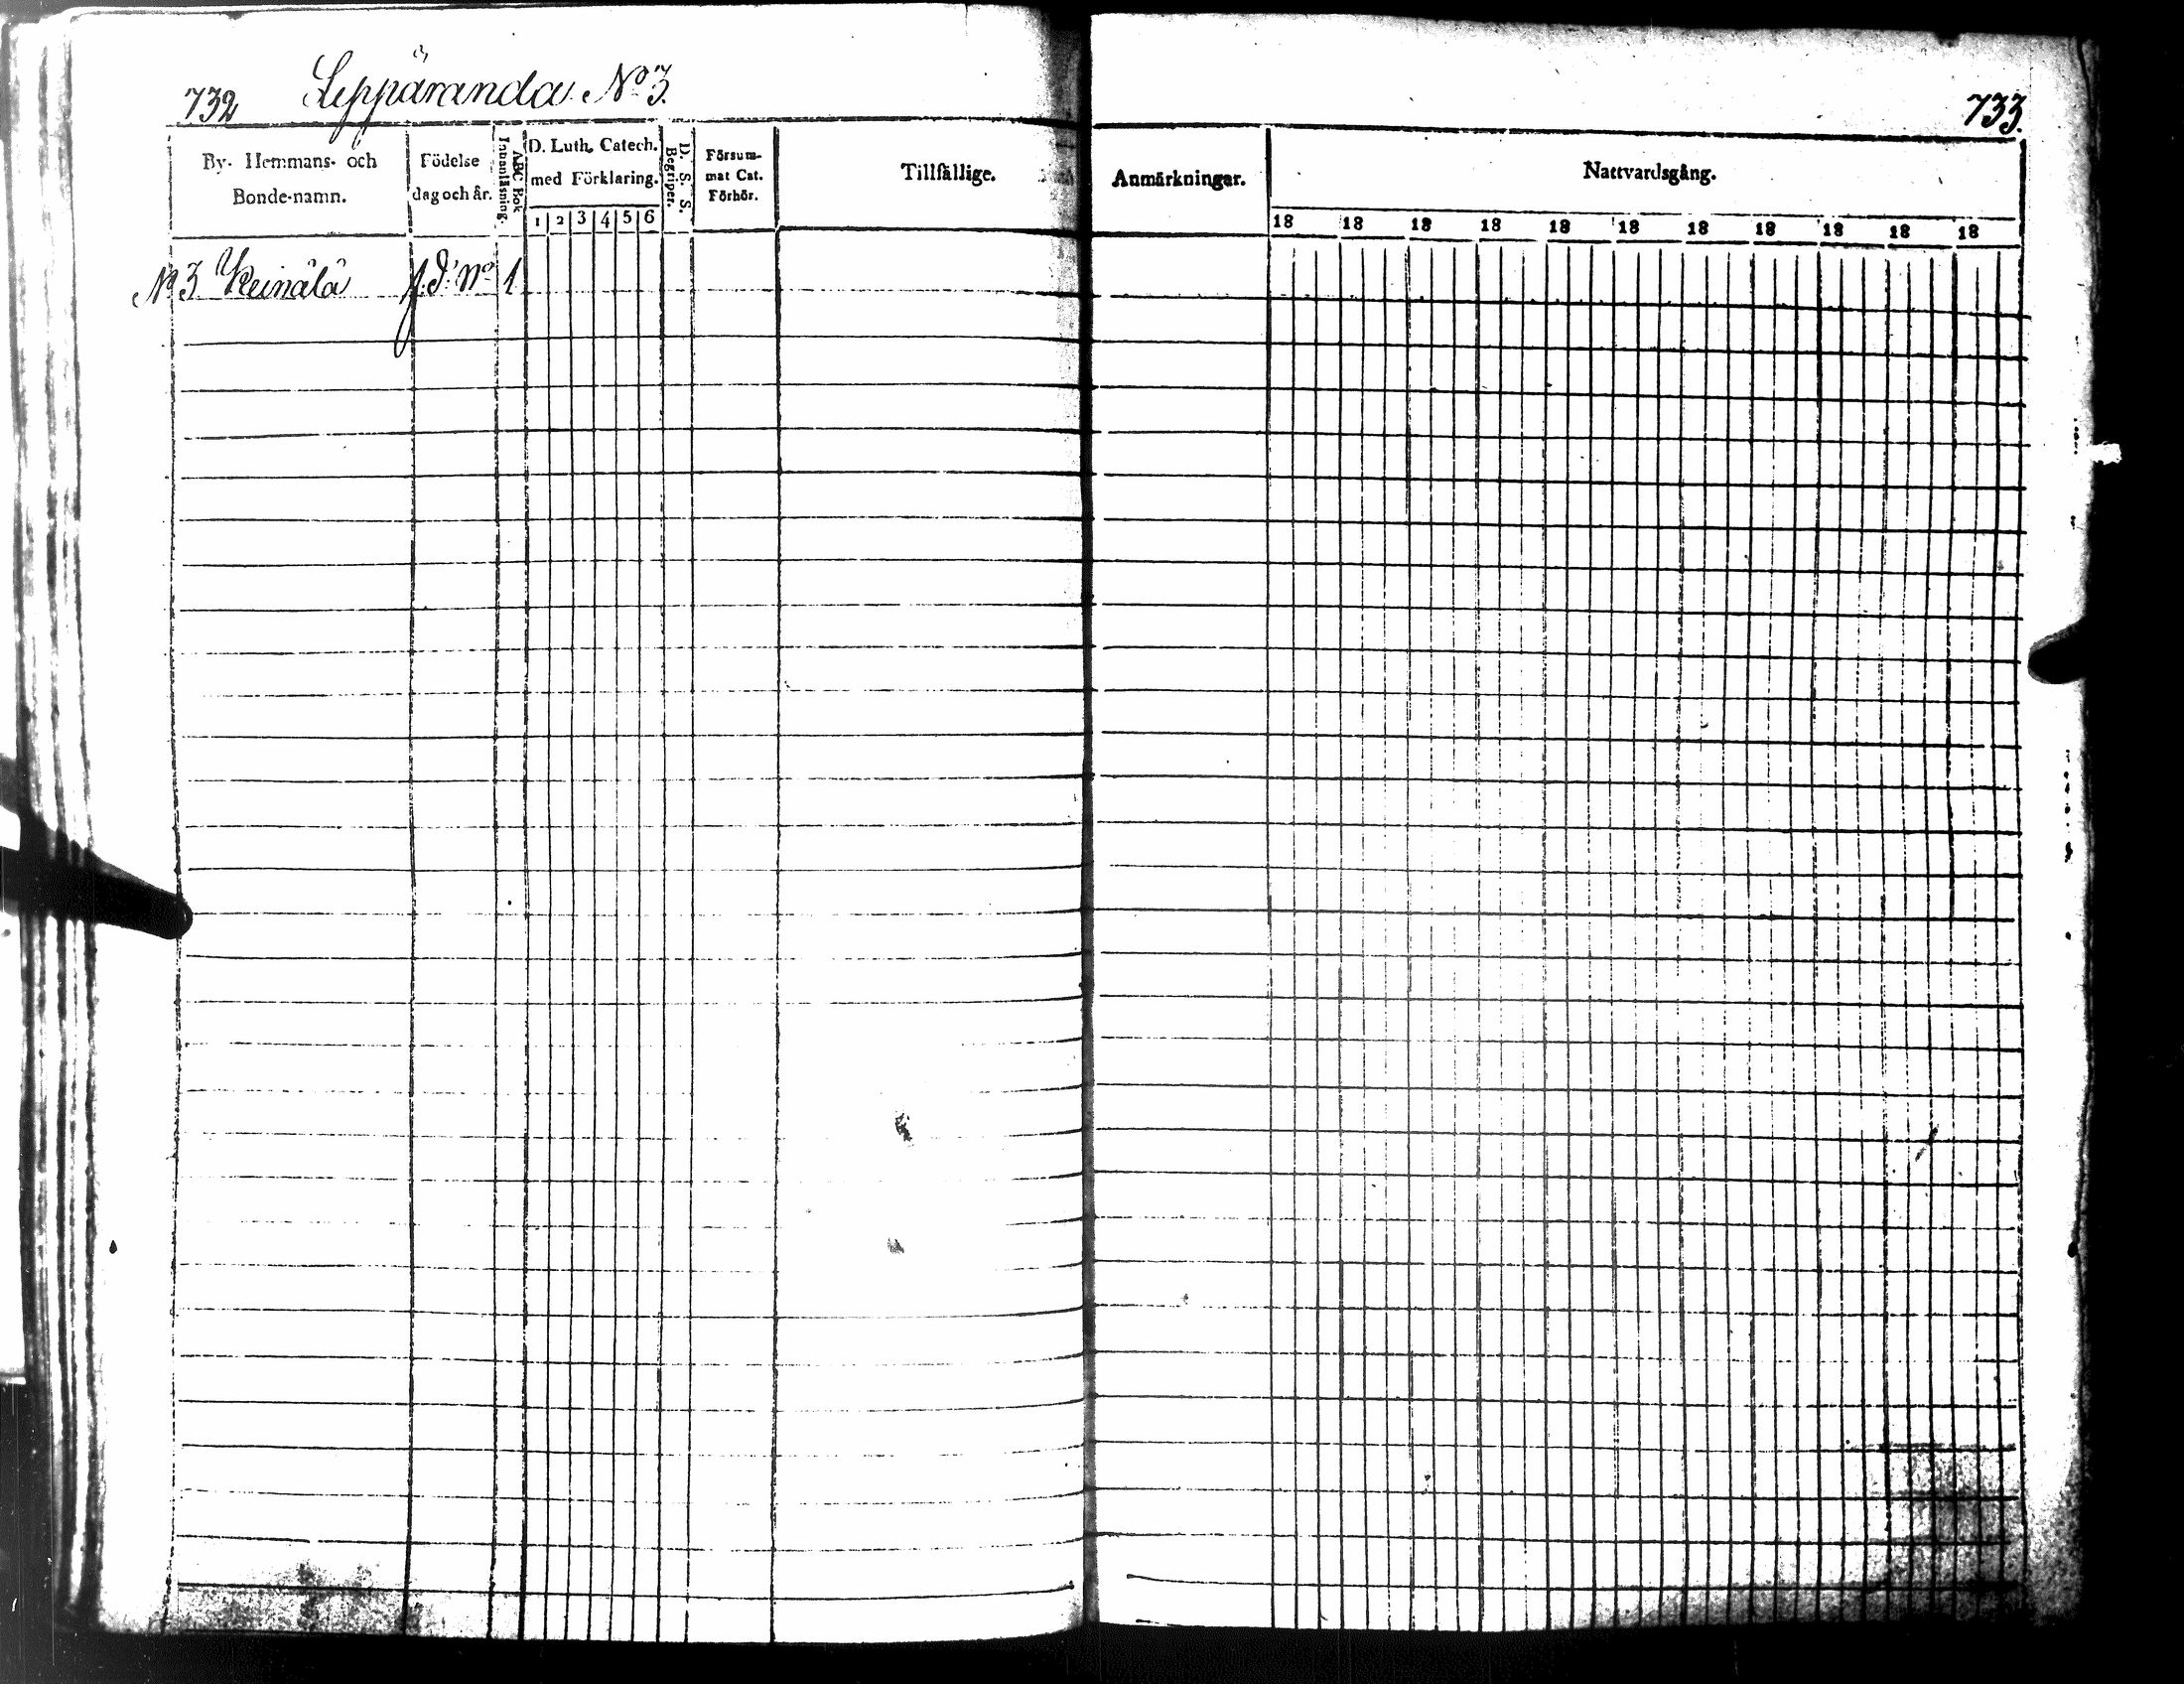 732 Leppäranda No 3.
733.
By- Hemmans- och Bonde-namn.
Födelse dag och år.
ABC Bok Innanläsning.
D. Luth. Catech. med Förklaring.
1 2 3 4 5 6
D. S. S. Begriper.
Försummat Cat. Förhör.
Tillfällige.
Anmärkningar.
Nattvardsgång.
18 18 18 18 18 18 18 18 18 18 18
No 3 Keinälä No 1